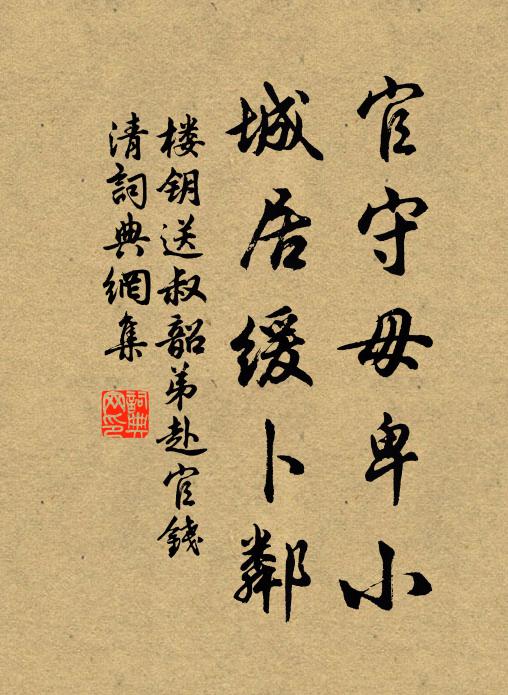 官守毋卑小
城居缓卜鄰
楼钥送叔韶弟赴官錢
清詞典網集
詞典
网印